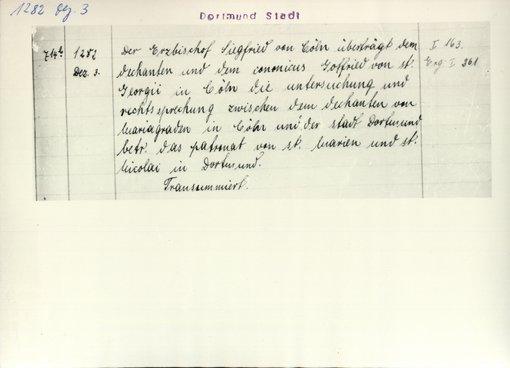 1282 Dez. 3
Dortmund Stadt
714b 1282 Dez. 3.
Der Erzbischof Siegfried von Cöln überträgt dem
dechanten und dem canonicus Goffried von st.
Georgii in Cöln die untersuchung und
rechtssprechung zwischen dem dechanten von
Mariagraden in Cöln und der stadt Dortmund
betr. das patronat von st. Marien und st.
Nicolai in Dortmund.
Transummiert.
I 163.
Erg. I 361